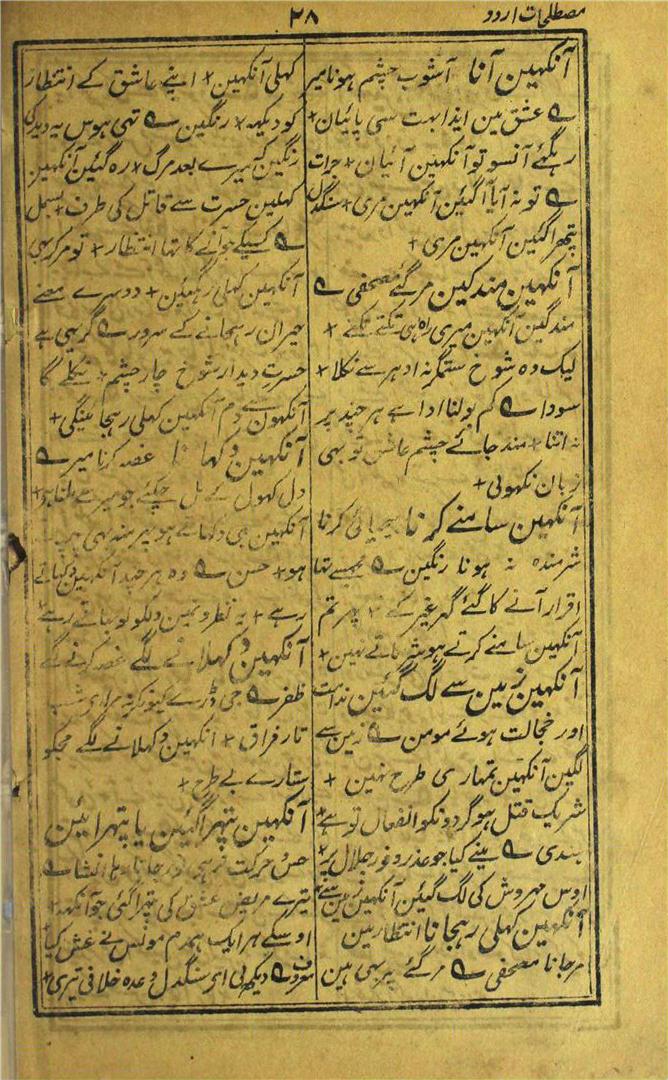 مصطلحات اردو
۲۸
آنکھین آنا آشوب چشم ہونا میر
ے عشق مین ایذا بہت سی پائیان+
رہگئے آنسو تو آنکھین آئیان+ جرات
ے تو نہ آیا آ گئین آنکھین مری+ سنگدل
پتھرا گئین آنکھین مری+
آنکھین مند گئین مر گئے مصحفی ے
مند گئین آنکھین میری راہ ہی تکتے تکتے +
لیک وہ شوخ ستمگر نہ ادہر سے نکلا+
سودا ے کم بولنا ادا ہے ہر چند پر
نہ اتنا+ مند جائے چشم عاشق تو بھی
زبان نکھولی+
آنکھین سامنے کرنا بیحیائی کرنا
شرمندہ نہ ہونا رنگین ے مجھسے تھا
اقرار آنے کا گئے گھر غیر کے + پھر تم
آنکھین سامنے کرتے ہو شرماتے نہین+
آنکھین زمین سے لگ گئین ندامت
اور خجالت ہوئے مومن ے زمین سے
لگین آنکھین تمہاری طرح نہین +
شریک قتل ہو گردونکو انفعال تو ہے+
ے بینے کیا جو عذر وفور جلال پر+
اوس مہروش کی لگ گئین آنکھین زمین سے
آنکھین کھلی رہجانا انتظار مین
مر جانا مصحفی ے مر گئے پر بھی ہین
کھلی آنکھین+ اپنے عاشق کے انتظار
کو دیکھہ+ رنگین ے تھی ہوس یہ دید کی
رنگین کہ میرے بعد مرگ+ رہ گئین آنکھین
کھلین حسرت سے قاتل کی طرف+ بسمل
ے کسیکے جو آنے کا تھا انتظار+ تو مر کر بھی
آنکھین کھلی رہگئین+ دوسرے معنے
حیران رہجانے کے سرور ے گر یہی ہے
حسرت دیدار شوخ چار چشم+ نکلے گا
آنکھون سے دم آنکھین کھلی رہجاینگی+
آنکھین دکھانا غصہ کرنا میر ے
دل کھول کے مل چکئے جو میر سے ملنا ہو+
آنکھین بھی دکھاتے ہو پھر منہ بھی چھپاتے
ہو+ حسن ے وہ ہر چند آنکھین دکھاتے
رہے+ پہ نظرونمین دلکو لوبھاتے رہے
آنکھین دکھلانے لگے غصہ کرنے لگے
ظفر ے جی ڈرے کیونکر نہ میرا شب
تار فراق+ آنکھین دکھلانے لگے مجکو
ستارے بے طرح+
آنکھین پتھرا گئین یا پتھرائین
حس حرکت نرہی نور جاتا رہا انشا ے
تیرے مریض عشق کی پتھرا گئی جو آنکھہ+
اوسکے ہر ایک ہمدم مونس نے غش کیا
معروف ے دیکھ لی ای سنگدل وعدہ خلافی تیری+